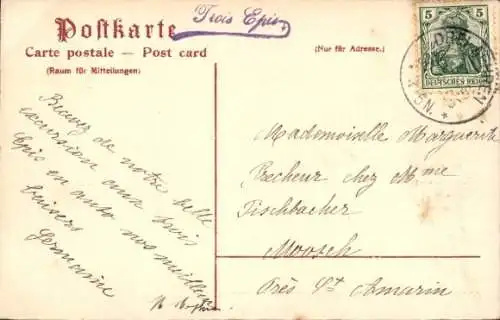 Postkarte
Trois Epis
Carte postale — Post card
(Raum für Mitteilungen)
(Nur für Adresse.)
5 5
DEUTSCHES REICH
Recevez de notre belle
excursion aux trois
Epis en auto nos meilleurs
baisers
Germaine
Mademoiselle Marguerite
Pecheur chez Mme
Fischbacher
Moosch
Près St Amarin